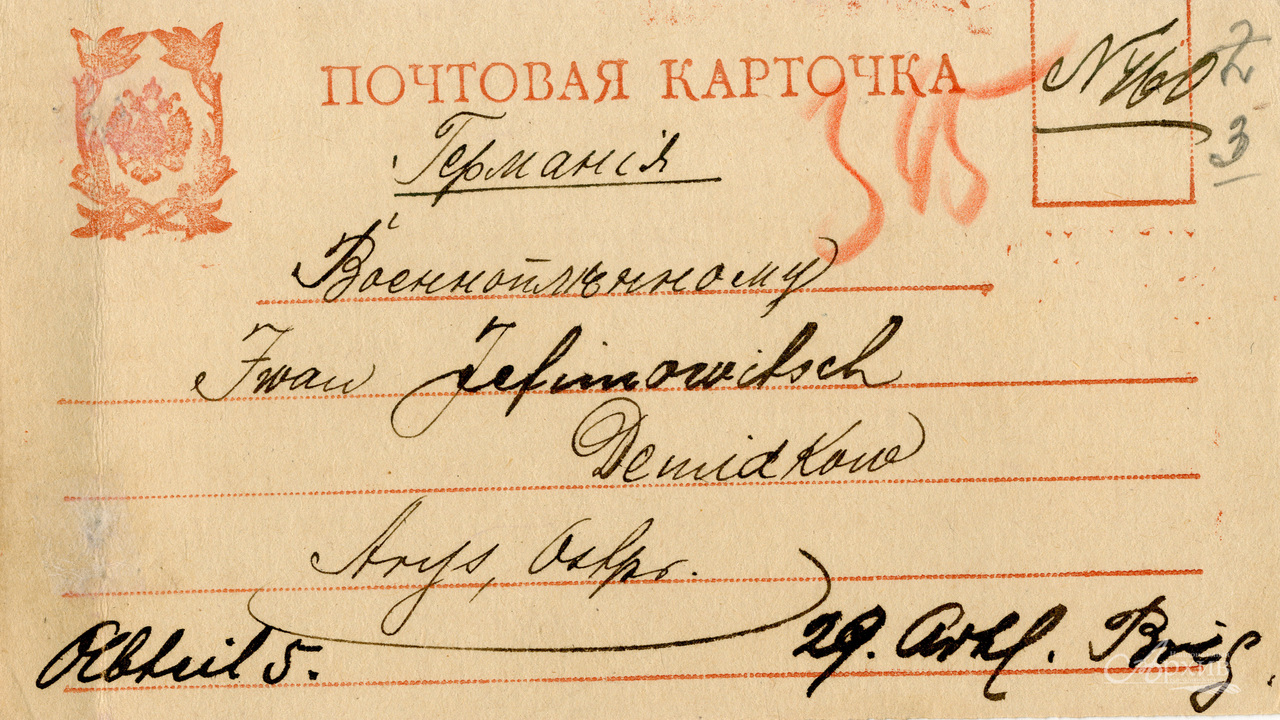 ПОЧТОВАЯ КАРТОЧКА
N460
2
3
345
Германія
Военноплѣнному
Iwan Jefimowitsch
Demidkow
Arys, Ostpr.
Abteil 5.
29. Artl. Brig.
Архив